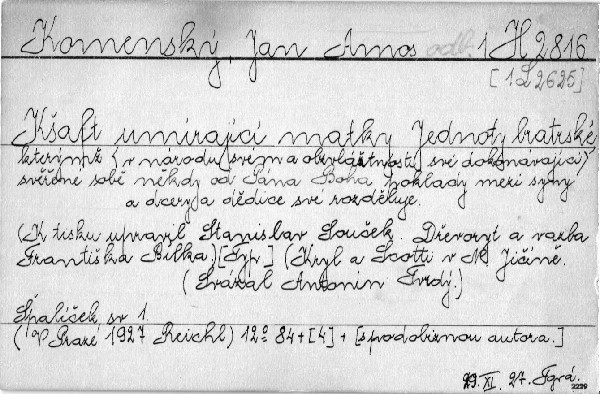 Komenský, Jan Amos odb. 1 H 2816
[1 L 2625]
Kšaft umírající matky Jednoty bratrské,
kterýmž (v národu svém a obzvláštnosti své dokonávající)
svěřené sobě někdy od Pána Boha poklady mezi syny
a dcery a dědice své rozděluje.
(K tisku upravil Stanislav Souček. Dřevoryt a vazba
Františka Bílka) [Typ.] (Kryl a Scotti v N. Jičíně.
(Svázal Antonín Tvrdý.)
Špalíček sv 1.
Praze 1927 Reichl) 12º 84+[4] + [s podobiznou autora.]
29. XI. 27.
2229